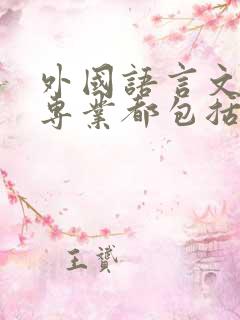 外國語言文
專業都包括
王贇